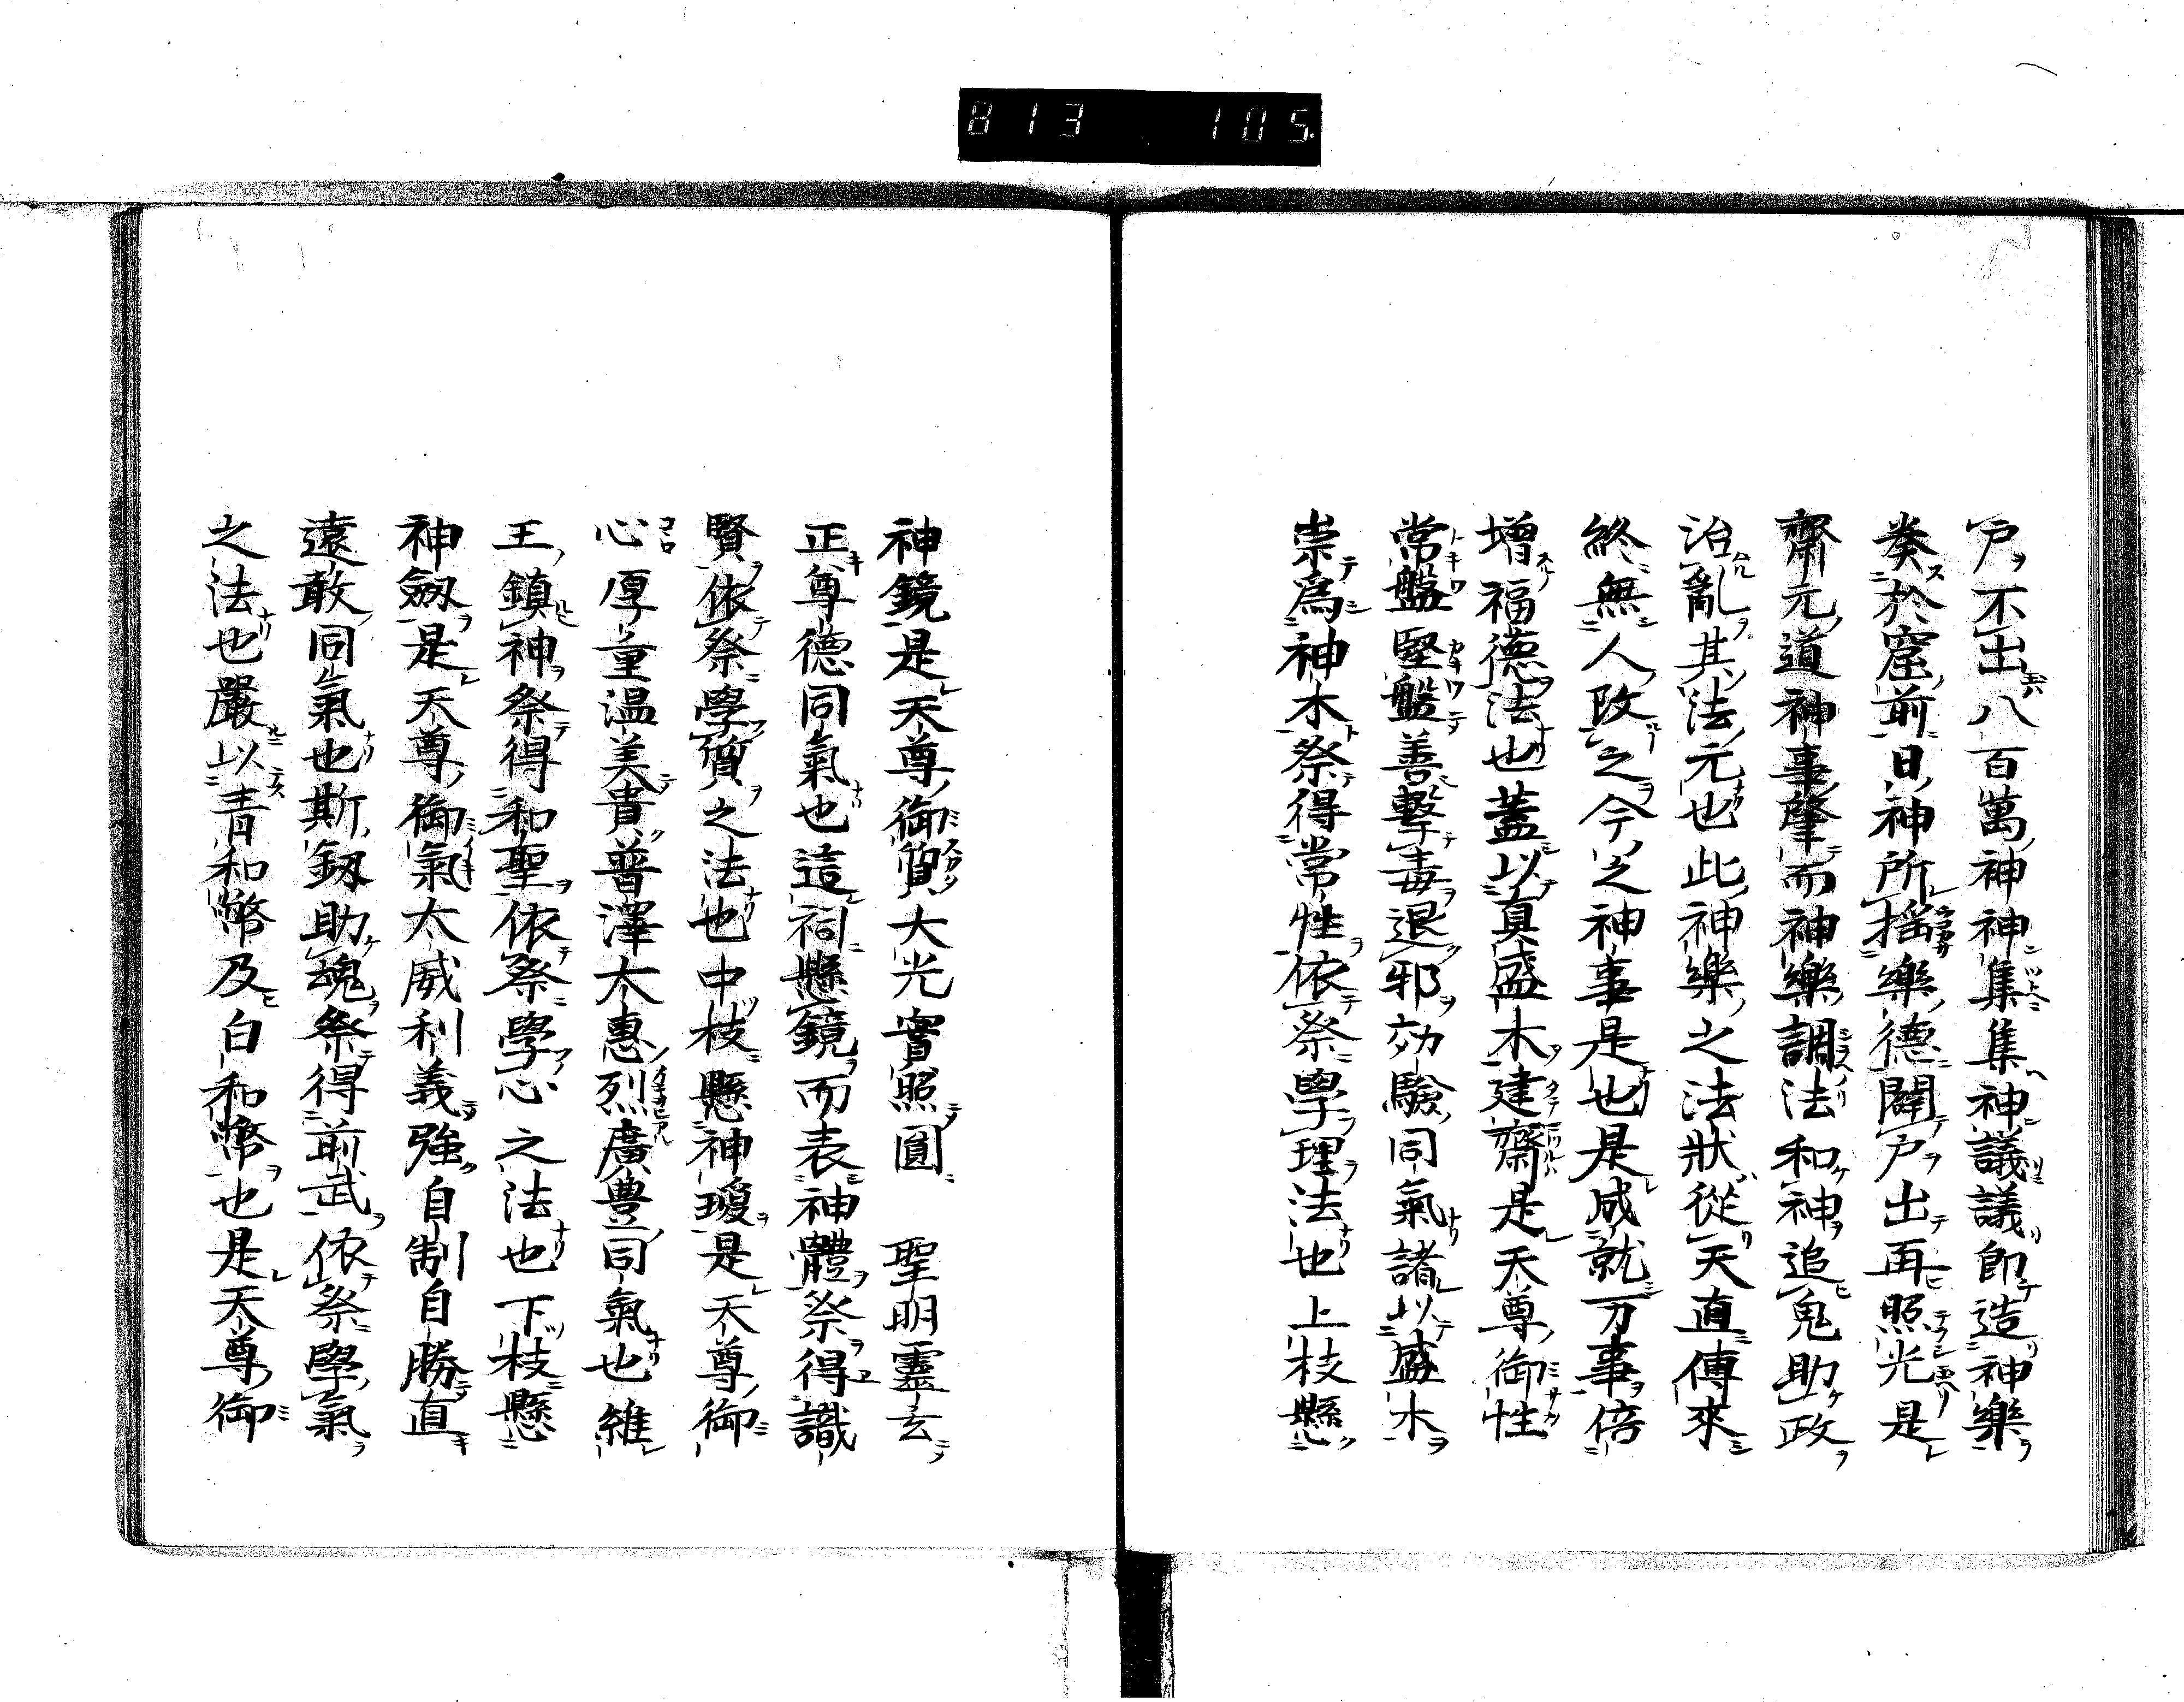 813 105
戸不出八百萬神神集集神議議即造神樂
奏於窟前日神所搖樂德闢戸出再照光是
齋元道神事肇而神樂調法和神追鬼助政
治亂其法元也此神樂之法狀從天直傳來
終無人改之今之神事是也是成就万事倍
增福德法也蓋以真盛木建齋是天尊御性
常盤堅盤善擊毒退邪効驗同氣諸以盛木
崇為神木祭得常性依祭學理法也上枝懸
神鏡是天尊御質大光實照圓 聖明靈玄
正尊德同氣也這祠懸鏡而表神體祭得識
賢依祭學質之法也中枝懸神瓊是天尊御
心厚重温美貴普澤大惠烈廣豊同氣也維
王鎮神祭得和聖依祭學心之法也下枝懸
神劔是天尊御氣大威利義強自制自勝直
遠敢同氣也斯釼助魂祭得前武依祭學氣
之法也嚴以青和幣及白和幣也是天尊御